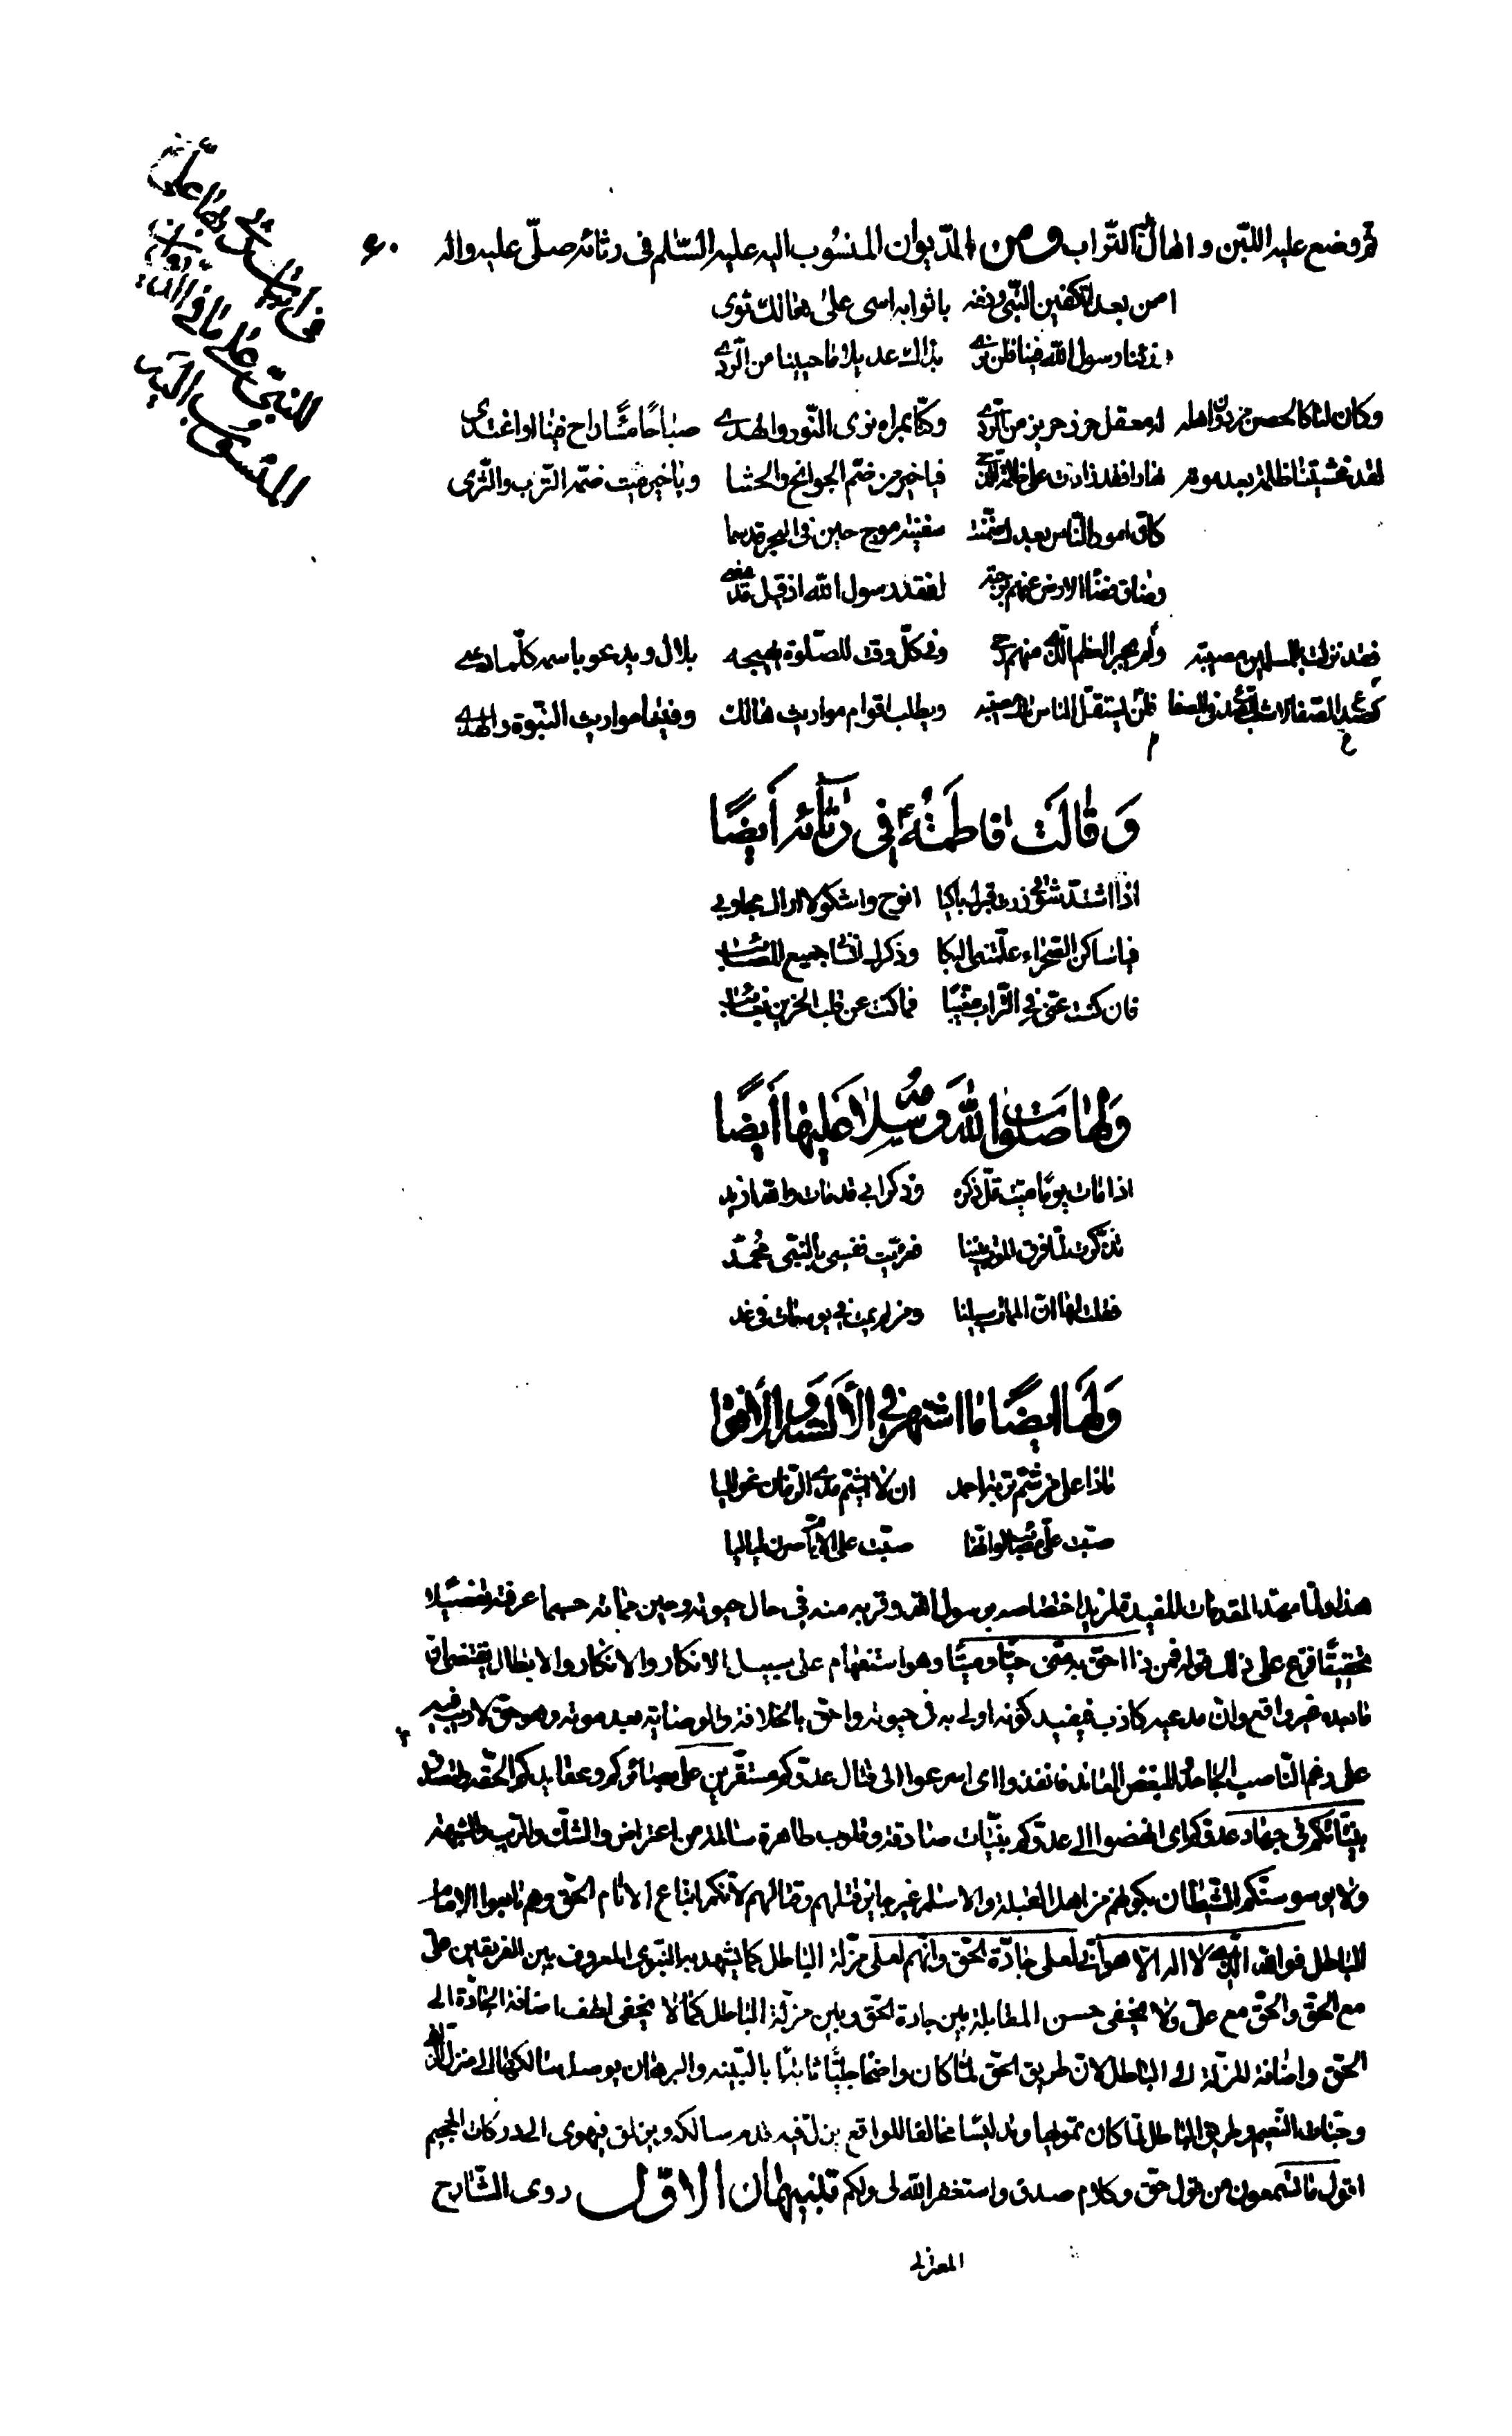 ثم وضع عليه اللبن واهال التراب ومن الديوان المنسوب اليه عليه السلم في رثائه صلى عليه واله
امن بعد تكفين النبي ودفنه باثوابه اسى على هالك ثوى
رزئنا رسول الله فينا فلن نرى بذاك عديلا ما حيينا من الردى
وكان لنا كالحصن من دون اهله له معقل حرز حريز من الردى وكنا بمراه نرى النور والهدى صباحا مساء راح فينا او اغتدى
لقد غشيتنا ظلمة بعد موته نهارا فقد زادت على ظلمة الدجى فيا خير من ضم الجوانح والحشا ويا خير ميت ضمه الترب والثرى
كان امور الناس بعدك ضمنت سفينة موج حين في البحر قد سما
وضاق فضاء الارض عنهم برحبه لفقد رسول الله اذ قيل قد مضى
فقد نزلت بالمسلمين مصيبة كصدع الصفا لا شعب للصدع في الصفا
ولن يجبر العظم الذي منهم وهى وفى كل وقت للصلوة يهيجه بلال ويدعو باسمه كلما دعى
فلن يستقل الناس تلك مصيبة ويطلب اقوام مواريث هالك وفينا مواريث النبوة والهدى
وَقالَت فاطمة في رثآئه أيضًا
اذا اشتد شوقي زرت قبرك باكيا انوح واشكو لا اراك مجاوبي
فيا ساكن الصحراء علمتني البكا وذكرك انساني جميع المصائب
فان كنت عني في التراب مغيبا فما كنت عن قلب الحزين بغائب
وَلها صلوات الله وسلامه عليها أيضًا
اذا مات يوما ميت قل ذكره وذكر ابي قد مات والله ازيد
تذكرت لما فرق الموت بيننا فعزيت نفسي بالنبي محمد
فقلت لها ان الممات سبيلنا ومن لم يمت في يومه مات في غد
وَلها ايضًا ما اشتهر في الألسنة والأفواه
ماذا على من شم تربة احمد ان لا يشم مدى الزمان غواليا
صبت علي مصائب لو انها صبت على الايام صرن لياليا
هذا ولما مهد المقدمات المفيدة لمزيد اختصاصه برسول الله وقربه منه في حال حيوته وحين مماته حسبما عرفته تفصيلا
تحقيقا فرع على ذلك قوله فمن ذا احق به مني حيا وميتا وهو استفهام على سبيل الانكار والانكار والابطال يقتضى ان
ما بعده غير واقع وان مدعيه كاذب فيفيد كونه اولى به في حيوته واحق بالخلافة والوصاية بعد موته وهو حق لا ريب فيه
على رغم الناصب الجاحد المبغض المعاند فانفذوا اى اسرعوا الى قتال عدوكم مستقرين على بصائركم وعقايدكم الحقة ولتصدق
نياتكم في جهاد عدوكم اى انهضوا الى عدوكم بنيات صادقة وقلوب طاهرة سالمة من اعتراض والشك والريب والشبهة
ولا يوسوسنكم الشيطان بكونهم من اهل القبلة والاسلم غير جايز قتلهم وقتالهم لانكم اتباع الامام الحق وهم تابعوا الامام
الباطل فوالله الذي لا اله الا هو اني لعلى جادة الحق وانهم لعلى مزلة الباطل كما يشهد به النبوى المعروف بين الفريقين على
مع الحق والحق مع علي ولا يخفى حسن المقابلة بين جادة الحق وبين مزلة الباطل كما لا يخفى لطف اضافة الجادة الى
الحق واضافة المزلة الى الباطل لان طريق الحق لما كان واضحا جليا ثابتا بالبينة والبرهان يوصل سالكها الى منزل
وجنات النعيم وطريق الباطل لما كان تمويها وتدليسا مخالفا للواقع يزل فيه قدم سالكه ويزلق فيهوى الى دركات الجحيم
اقول ما تسمعون من قول حق وكلام صدق واستغفر الله لي ولكم تنبيهان الاول روى الشارح
المعتزلي